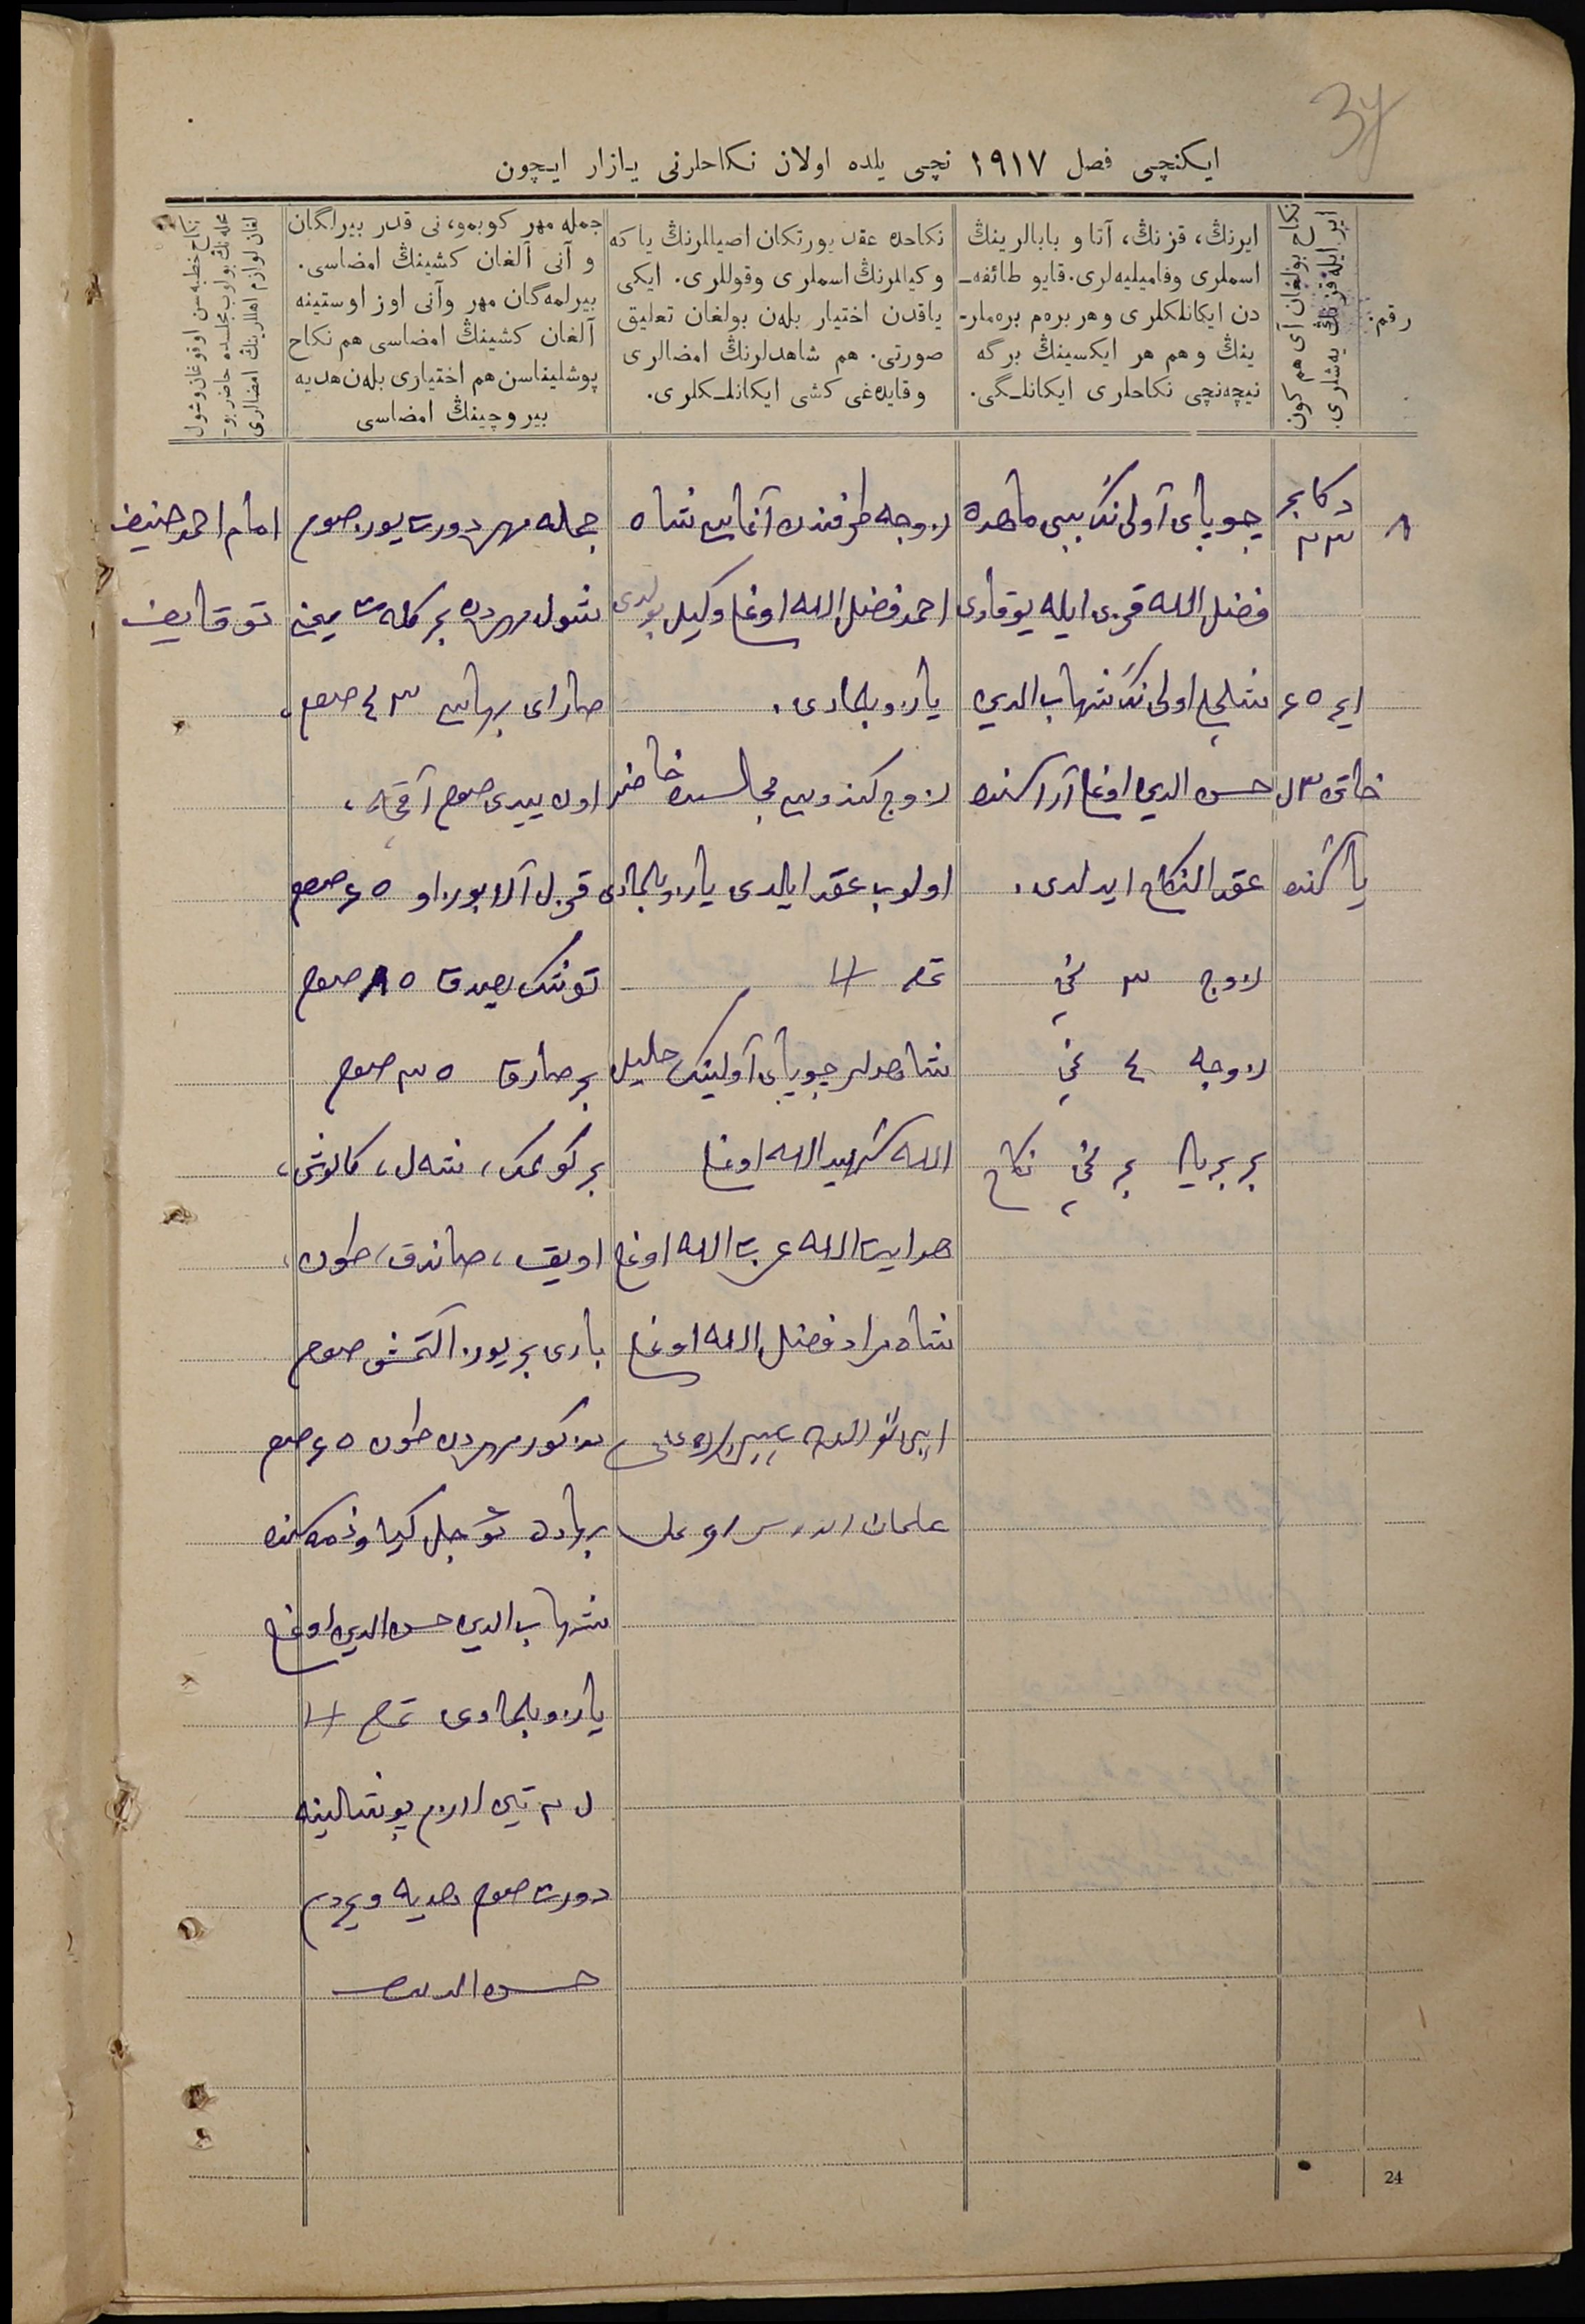 37
ایکنچی فصل ١٩١٧ نچی یلده اولان نکاحلرنی یازار ایچون
رقم.
نکاح بولغان آی هم کون
ایر ایله قزنڭ یەشلری.
ایرنڭ، قزنڭ، آتا و بابالرینڭ
اسملری وفامیلیه‌لری. قایو طائفه‌ـ
دن ایکانلکلری و هر بره‌م بره‌ملرـ
ینڭ و هم هر ایکسینڭ برگه
نیچه‌نچی نکاحلری ایکانلـگی.
نکاحده عقد یورتکان اصیللرنڭ یا که
وکیللرنڭ اسملری وقوللری. ایکی
یاقدن اختیار بله‌ن بولغان تعلیق
صورتی. هم شاهدلرنڭ امضالری
وقایده‌غی کشی ایکانلـکلری.
جمله مهر کوبمو، نی قدر بیرلگان
و آنی آلغان کشینڭ امضاسی.
بیرلمه‌گان مهر وآنی اوز اوستینه
آلغان کشینڭ امضاسی هم نکاح
پوشلیناسن هم اختیاری بله‌ن هدیه
بیر وچینڭ امضاسی
نکاح خطبه‌سن اوقوغان وشول
محله‌نڭ بولوب مجلسده حاضر بوـ
لغان لوازم اهللرینڭ امضالری
٨
دکابر
٢٣
ایر ٤٥
خاتون
یاشنده
چوپای آولی نڭ بیبی ماهده
فضل الله قزی ایله یوقاری
اولی نڭ شهاب الدین
حسن الدین اوغلی آراسنده
عقد النکاح ایدلدی.
زوج ٣ نچی
زوجه ٤ نچی
بر بریله بر نچی نکاح
زوجه طرفندن آغاسی شاه
احمد فضل الله اوغلی وکیل بولدی
یازو بلمادی.
زوج کندوسی مجلسده حاضر
اولوب عقد ایلدی یازو بلمادی
تمام
شاهدلر چوپای آولینڭ خلیل
الله شهید الله اوغلی
هدایت الله عزت الله اوغلی
شاه مراد فضل الله اوغلی
جمله مهر دورت یوز صوم
شول مهردن بر کله‌ت یعنی
صارای بهاسی ٣٤ صوم،
اون ییدی صوم آقچه،
قزل آلا بوزاو ٤٥ صوم
توشک یصدق ٨٥ صوم
بر صارق ٣٥ صوم
بر کولمک، شه‌ل، کالوش،
اویوق، صاندق، طون،
باری بر یوز آلتمش صوم
مذکور مهردن طون ٤٥ صوم
بهاده مؤجل کیاو ذمه‌سنده
شهاب الدین حسن الدین اوغلی
یازو بلمادی تمام
پوشلینه
دورت صوم هدیه ویردم
حسن الدین
امام احمد حنیف
توقایف
24